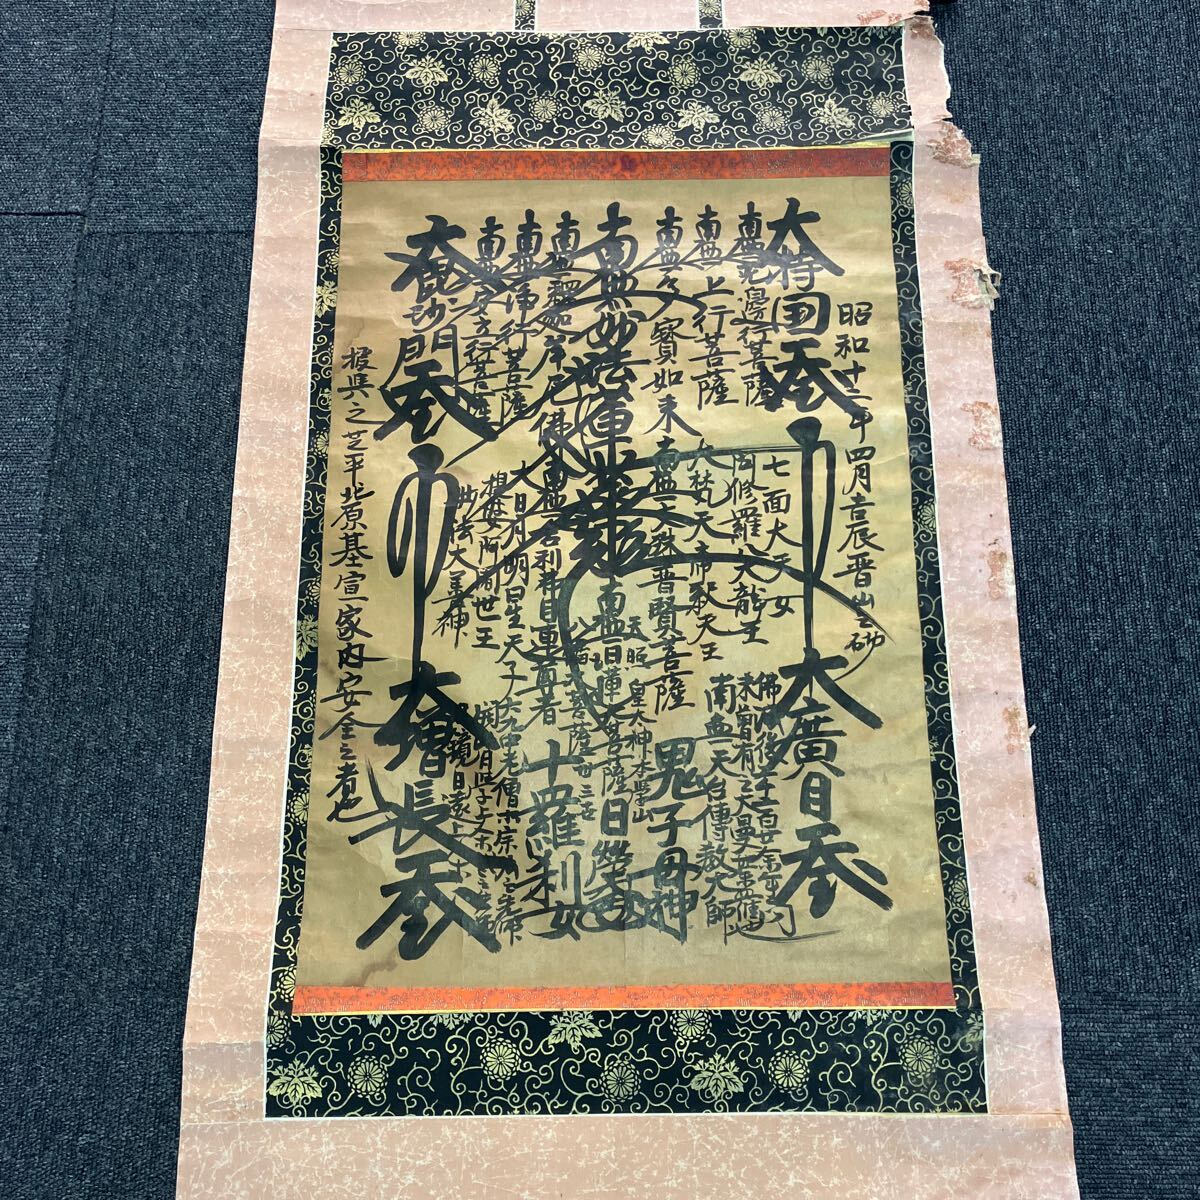 昭和十二年四月吉辰晋山之砌
大持国天
大廣目天
南無無邊行菩薩
南無上行菩薩
南無多寶如来
南無妙法蓮華経
南無釋迦牟尼佛
南無浄行菩薩
南無安立行菩薩
大毘沙門天
七面大天女
阿修羅大龍王
大梵天帝釈天王
南無文殊普賢菩薩
南無舎利弗目連尊者
大日月明星天子
提婆阿闍世王
妙法大善神
佛滅後二千二百廿余年
未曾有之大曼荼羅也
南無天台傳教大師
天照皇太神
鬼子母神
南無日蓮大菩薩
八幡大菩薩
十羅刹女
大増長天
授與之芝平北原基宣家内安全之者也